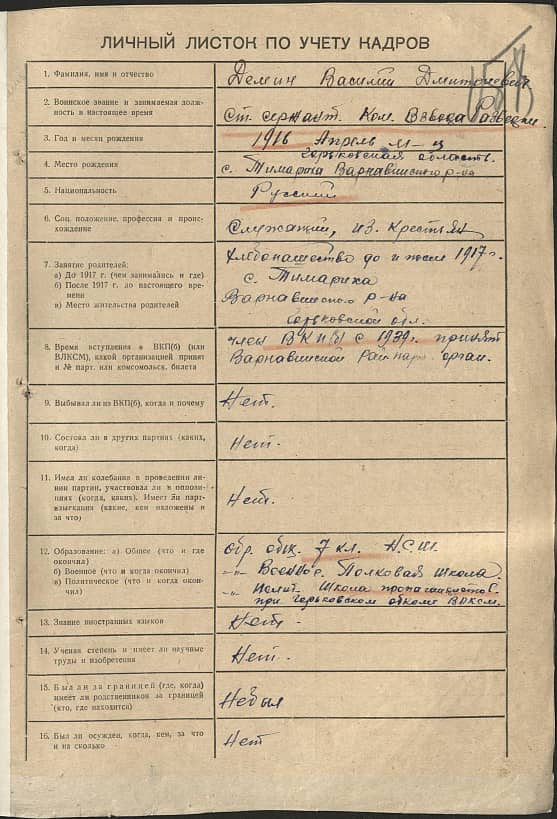 ЛИЧНЫЙ ЛИСТОК ПО УЧЕТУ КАДРОВ
1. Фамилия, имя и отчество
Демин Василий Дмитриевич
2. Воинское звание и занимаемая долж-
ность в настоящее время
Ст. сержант. Ком. Взвода Разведки.
3. Год и месяц рождения
1916 Апрель м-ц
4. Место рождения
Горьковская область.
с. Тимариха Варнавинского р-на
5. Национальность
Русский
6. Соц. положение, профессия и проис-
хождение
Служащий, из крестьян
7. Занятие родителей:
а) До 1917 г. (чем занимались и где)
б) После 1917 г. до настоящего вре-
мени
в) Место жительства родителей
Хлебопашество до и после 1917 г.
с. Тимариха
Варнавинского р-на
Горьковской обл.
8. Время вступления в ВКП(б) (или
ВЛКСМ), какой организацией принят
и № парт. или комсомольск. билета
член ВКП(б) с 1939г. принят
Варнавинской Рай парт. орган.
9. Выбывал ли из ВКП(б), когда и почему
Нет.
10. Состоял ли в других партиях (каких,
когда)
Нет.
11. Имел ли колебания в проведении ли-
нии партии, участвовал ли в оппози-
циях (когда, каких). Имеет ли парт-
взыскания (какие, кем наложены и
за что)
Нет.
12. Образование: а) Общее (что и где
окончил)
б) Военное (что и когда окончил)
в) Политическое (что и когда окон-
чил)
обр. общ. 7 кл. Н.С.Ш.
-"- Военное. Полковая школа.
-"- Полит. Школа пропагандистов
при Горьковском обкоме ВЛКСМ.
13. Знание иностранных языков
Нет.
14. Ученая степень и имеет ли научные
труды и изобретения
Нет.
15. Был ли за границей (где, когда)
имеет ли родственников за границей
(кто, где находится)
Небыл
16. Был ли осужден, когда, кем, за что
и на сколько
Нет